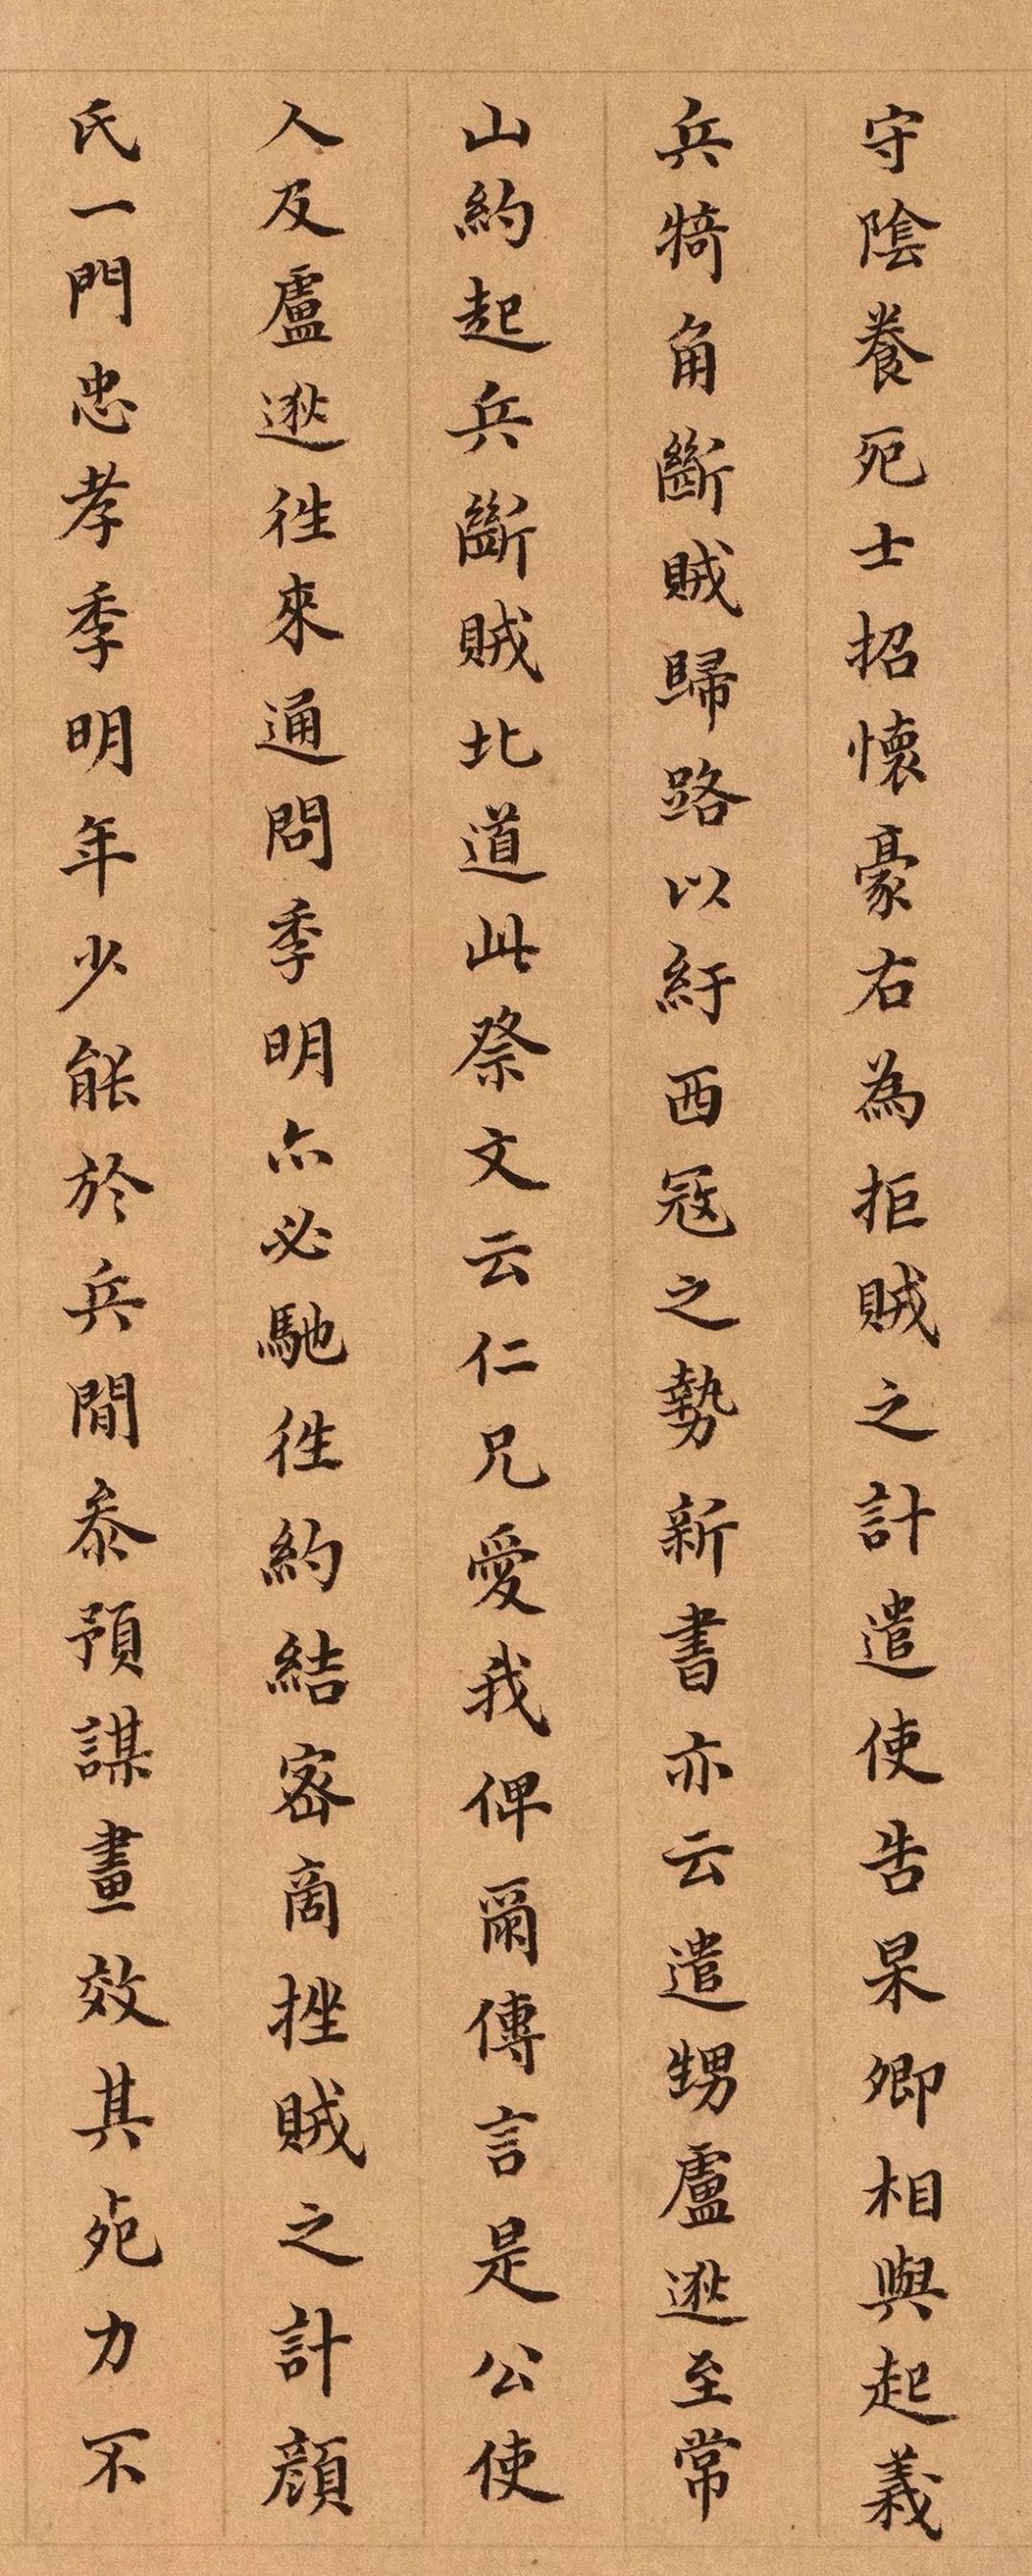 守陰養死士招懷豪右為拒賊之計遣使告杲卿相與起義
兵犄角斷賊歸路以紓西冦之勢新書亦云遣甥盧逖至常
山約起兵斷賊北道此祭文云仁兄愛我俾爾傳言是公使
人及盧逖徃來通問季明亦必馳徃約結密啇挫賊之計顔
氏一門忠孝季明年少能於兵間叅預謀畫效其死力不